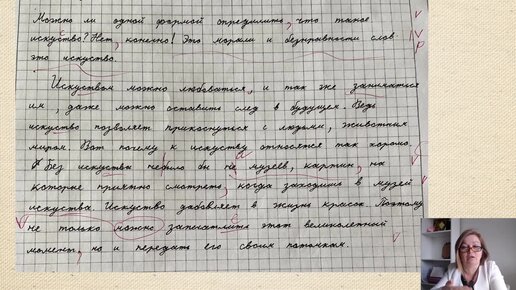 Можно ли одной фразой определить, что такое
искуство? Нет, конечно! Это морали и безправности слов
это искуство.
Искуством можно любоваться, и так же заниматься
им, даже можно оставить след в будущем. Ведь
искуство позволяет прикоснуться с людьми, животным
миром. Вот почему к искуству относятся так хорошо.
Без искуствы небыло бы не музеев, картин, на
которые приятно смотреть, когда заходишь в музей
искуства. Искуство добовляет в жизнь красок. Поэтому
не только можно запечатлить этот великолепный
момент, но и передать его своим потомкам.